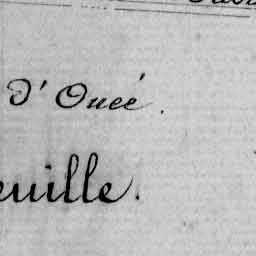 d'Oucé.
euille.